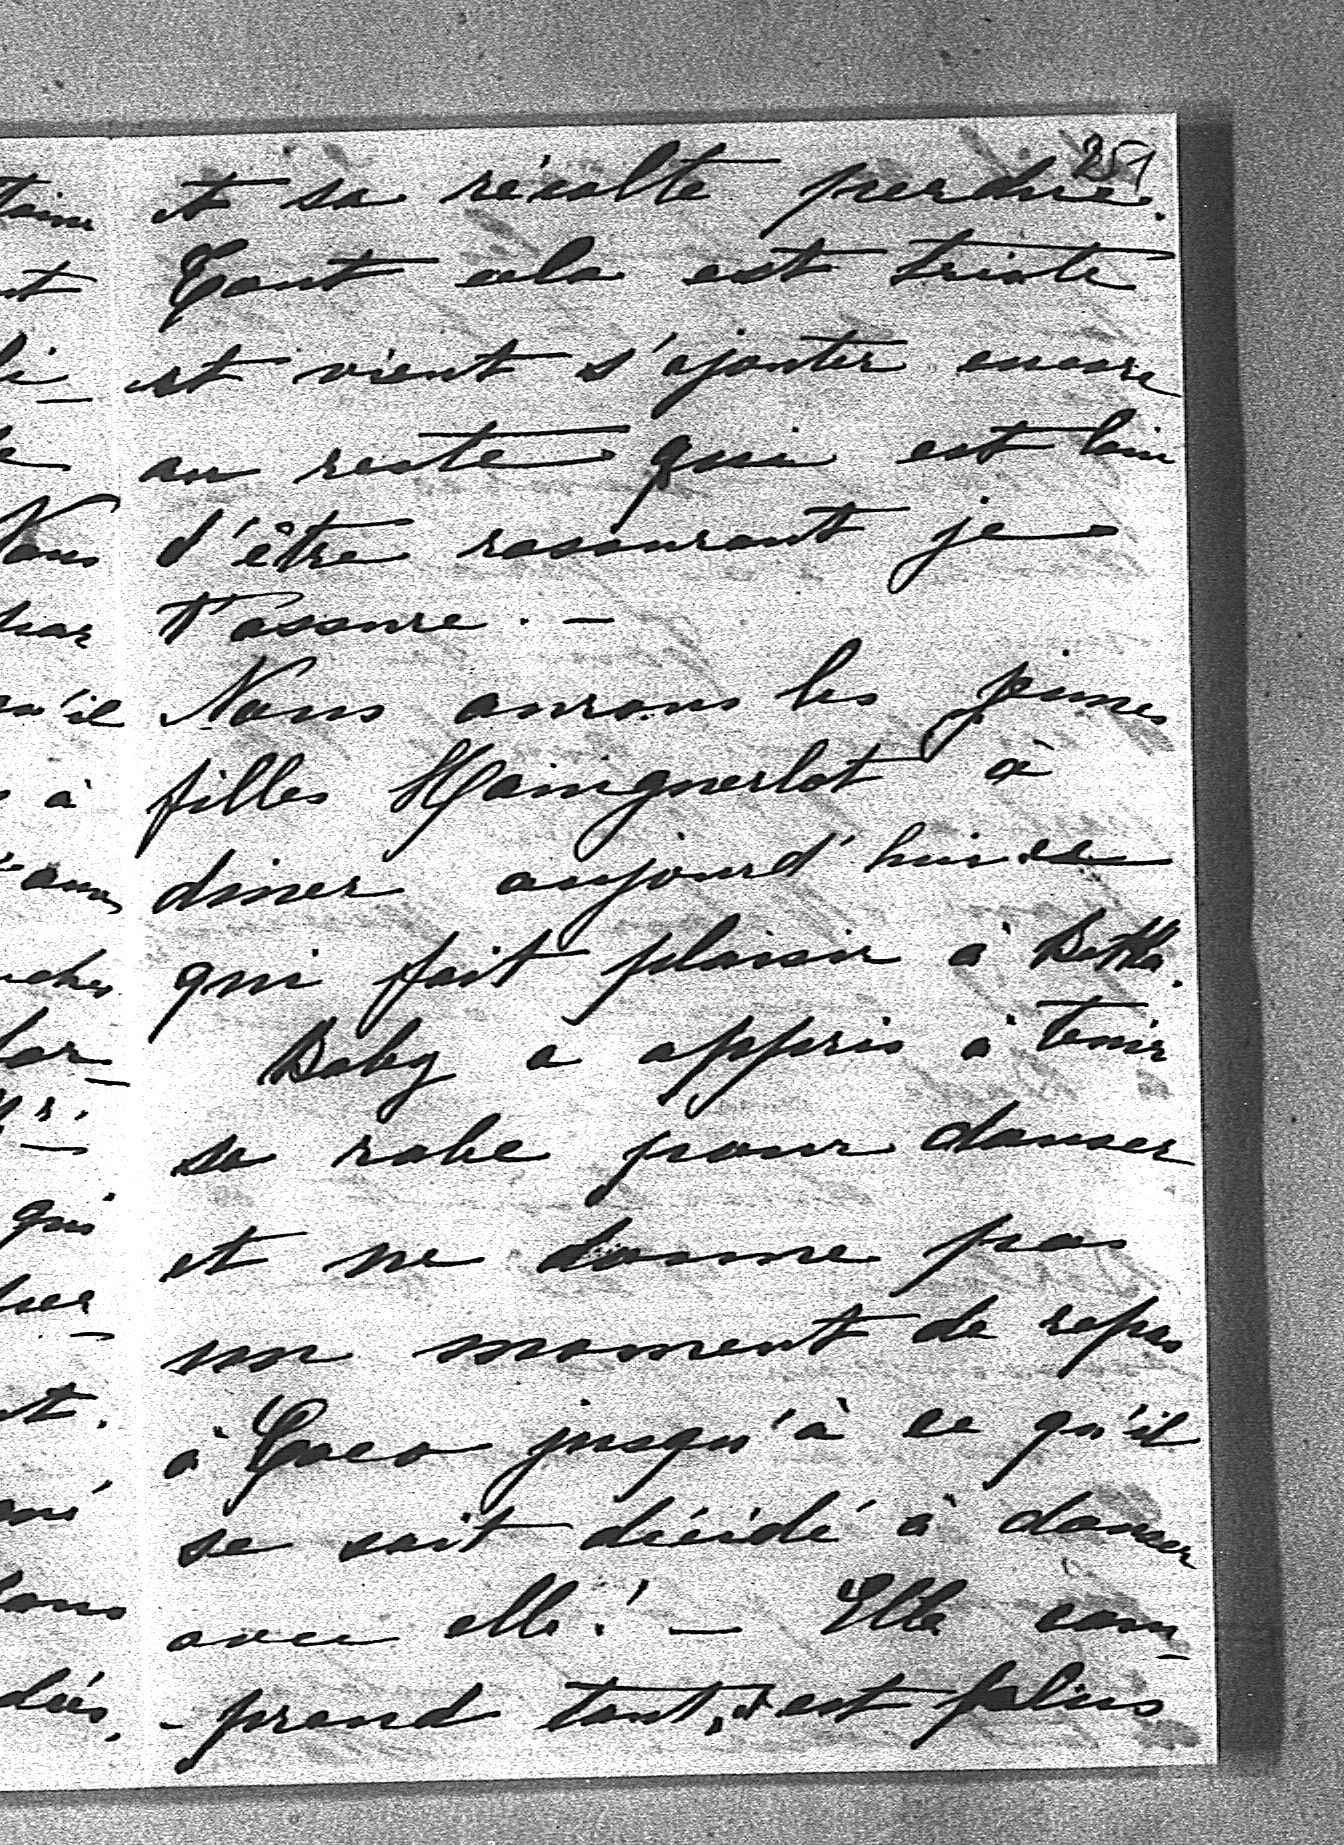 251
et sa récolte perdue.
Tout cela est triste
et vient s'ajouter encore
au reste qui est loin
d'être rassurant je
t'assure. —
Nous aurons les jeunes
filles Hainguerlot à
diner aujourd'hui ce
qui fait plaisir à Betka.
Baby a appris à tenir
sa robe pour danser
et ne donne pas
son moment de repos
à Coco jusqu'à ce qu'il
se soit décidé à danser
avec elle! — Elle com-
-prend tout, et est plus